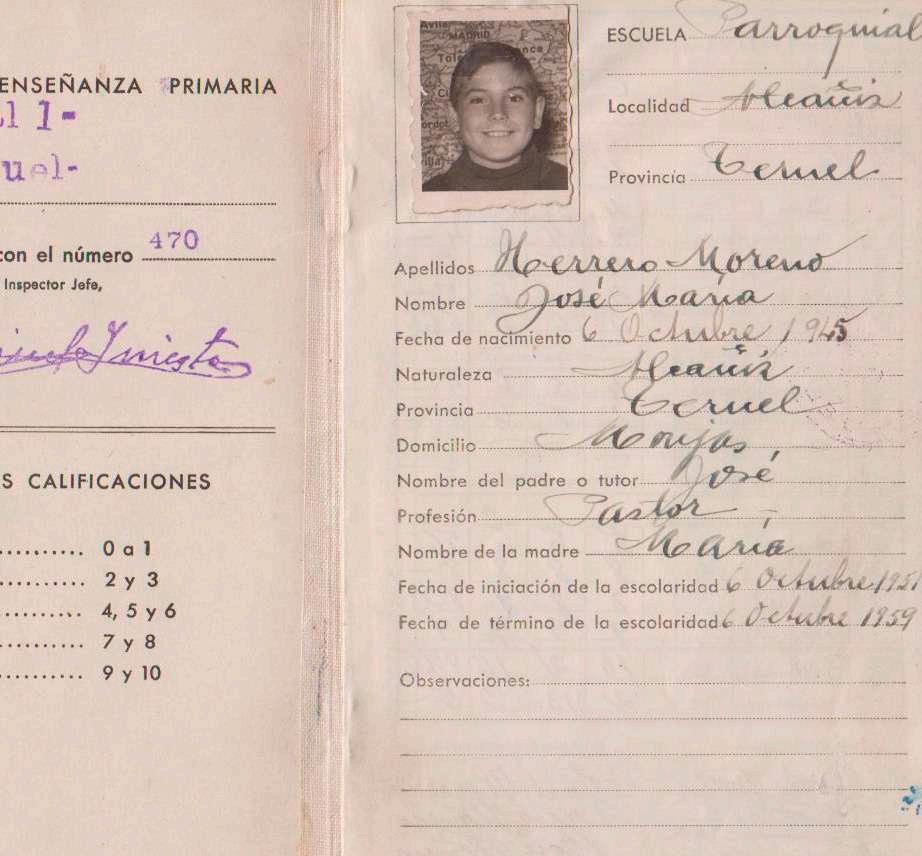 ENSEÑANZA PRIMARIA
al 1-
uel-
con el número 470
Inspector Jefe,
S CALIFICACIONES
.......... 0 a 1
.......... 2 y 3
.......... 4, 5 y 6
.......... 7 y 8
.......... 9 y 10
MADRID
ESCUELA Parroquial
Localidad Alcañiz
Provincia Teruel
Apellidos Herrero Moreno
Nombre José María
Fecha de nacimiento 6 Octubre 1945
Naturaleza Alcañiz
Provincia Teruel
Domicilio Monjas
Nombre del padre o tutor José
Profesión Pastor
Nombre de la madre María
Fecha de iniciación de la escolaridad 6 Octubre 1951
Fecha de término de la escolaridad 6 Octubre 1959
Observaciones: